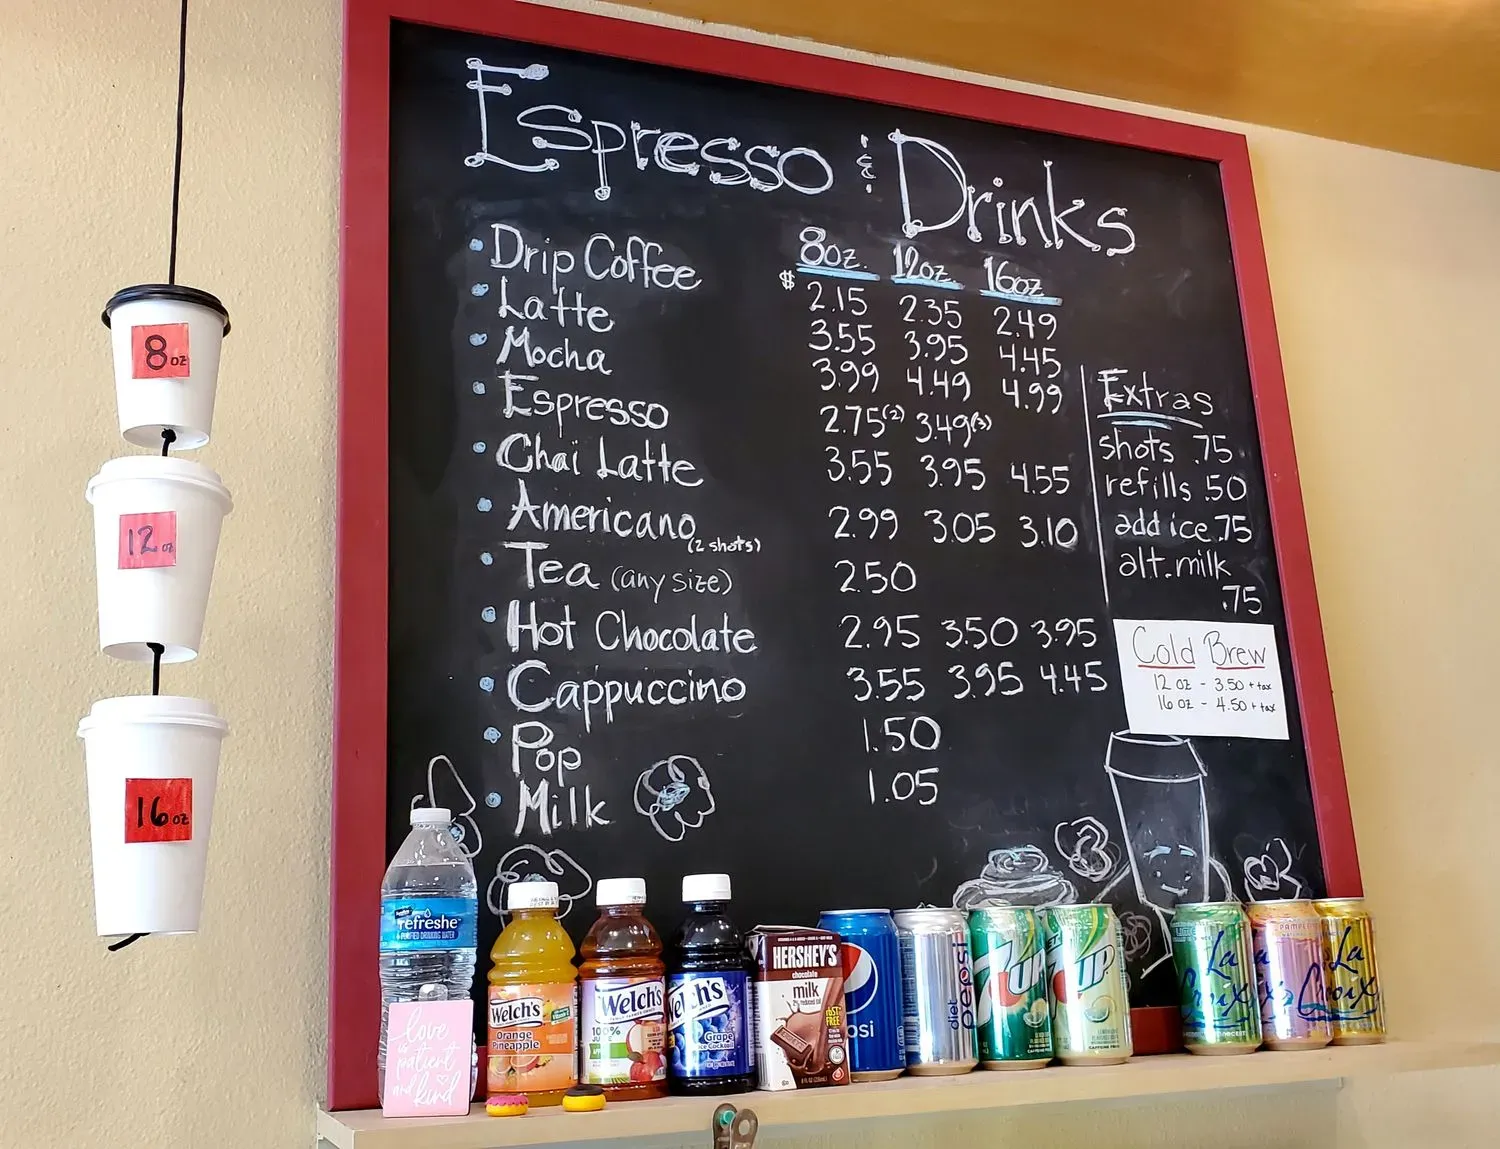 Espresso & Drinks
8oz. 12oz. 16oz
Drip Coffee $ 2.15 2.35 2.49
Latte 3.55 3.95 4.45
Mocha 3.99 4.49 4.99
Espresso 2.75(2) 3.49(3)
Chai Latte 3.55 3.95 4.55
Americano (2 shots) 2.99 3.05 3.10
Tea (any size) 2.50
Hot Chocolate 2.95 3.50 3.95
Cappuccino 3.55 3.95 4.45
Pop 1.50
Milk 1.05
Extras
shots .75
refills .50
add ice .75
alt. milk
.75
Cold Brew
12 oz - 3.50 + tax
16 oz - 4.50 + tax
8 oz
12 oz
16 oz
refreshe
PURIFIED DRINKING WATER
love
is
patient
and
kind
Welch's
Orange
Pineapple
Welch's
100%
JUICE
Welch's
Grape
HERSHEY'S
chocolate
milk
2% reduced fat
pepsi
diet
pepsi
7UP
7UP
La
Croix
La
Croix